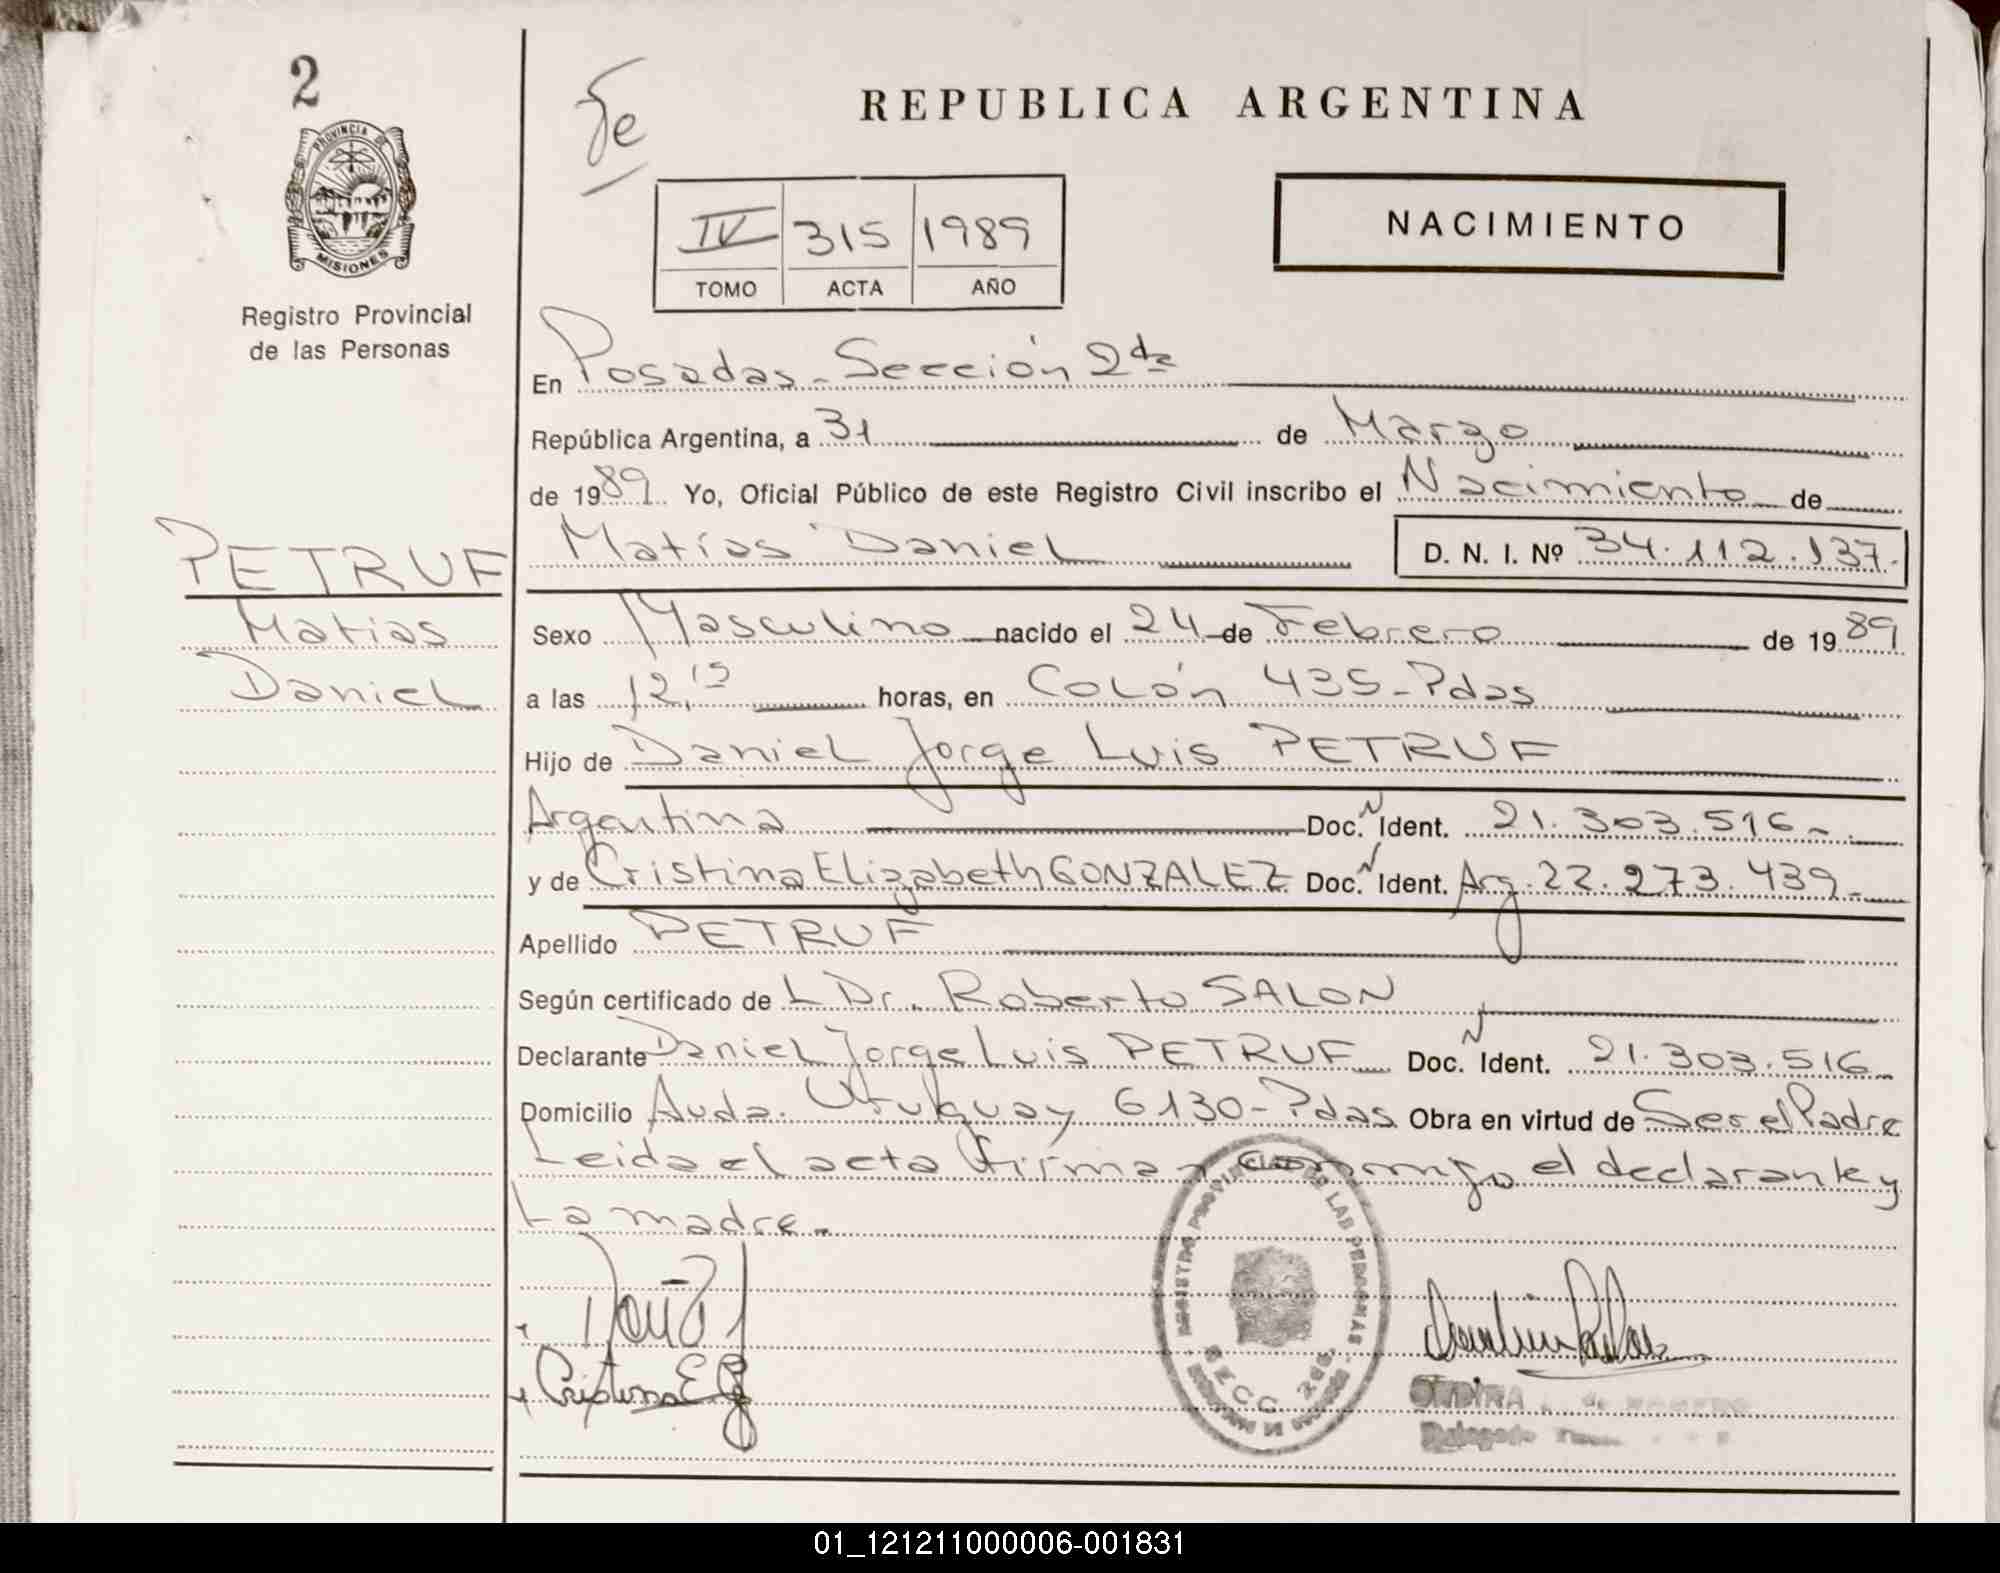 2
PROVINCIA DE
MISIONES
Registro Provincial
de las Personas
Fe
REPUBLICA ARGENTINA
IV 315 1989
TOMO ACTA AÑO
NACIMIENTO
En Posadas - Sección 2da
República Argentina, a 31 de Marzo
de 1989 Yo, Oficial Público de este Registro Civil inscribo el Nacimiento de
Matías Daniel D. N. I. Nº 34.112.137.
PETRUF
Matias
Daniel
Sexo Masculino nacido el 24 de Febrero de 1989
a las 12,15 horas, en Colón 435 - Pdas
Hijo de Daniel Jorge Luis PETRUF
Argentina Doc. N Ident. 21.303.516-
y de Cristina Elizabeth GONZALEZ Doc. N Ident. Arg. 22.273.439-
Apellido PETRUF
Según certificado de L Dr. Roberto SALON
Declarante Daniel Jorge Luis PETRUF Doc. N Ident. 21.303.516
Domicilio Avda. Uruguay 6130 - Pdas Obra en virtud de Ser el Padre
Leida el acta firman conmigo el declarante y
La madre.
Cristina E G
REGISTRO PROVINCIAL DE LAS PERSONAS
SECC. 2da.
ONDINA
Delegado
01_121211000006-001831